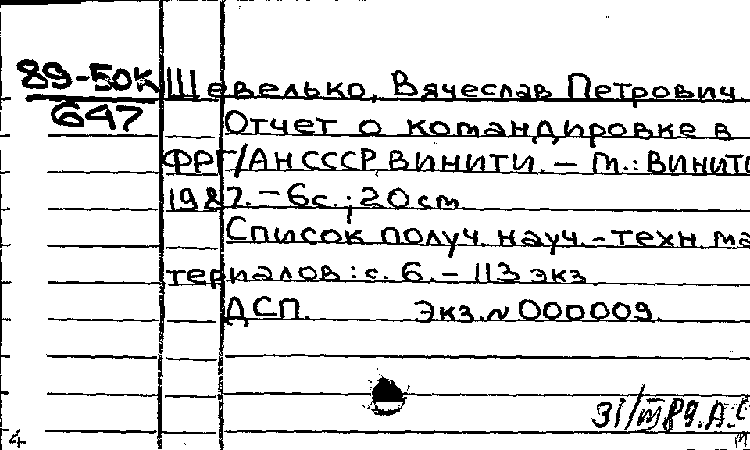 89-50К
647
Шевелько, Вячеслав Петрович.
Отчет о командировке в
ФРГ/АН СССР, ВИНИТИ. – М.: ВИНИТИ
1987. – 6с.; 20 см
Список получ. науч.-техн. ма
териалов: с. 6. – 113 экз
ДСП. Экз. № 000009.
31/III 89. А.С
4